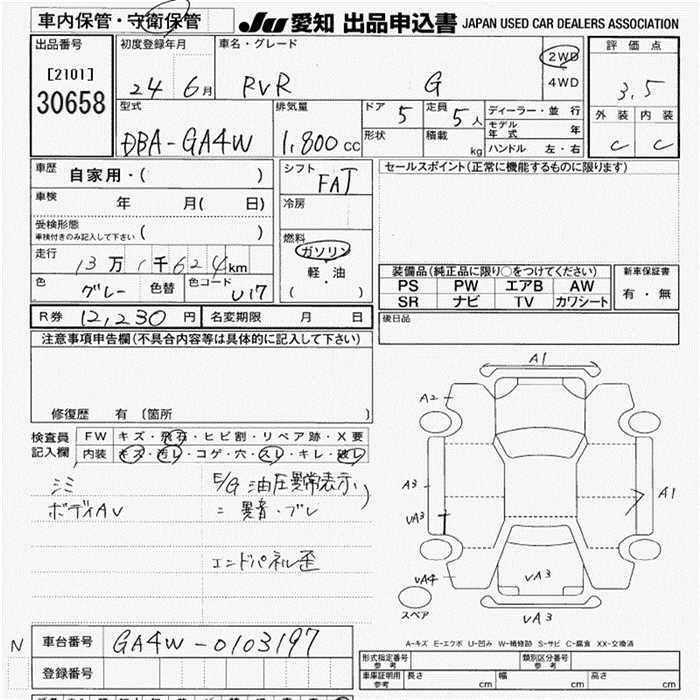 車内保管・守衛保管
JU 愛知 出品申込書 JAPAN USED CAR DEALERS ASSOCIATION
出品番号
[2101]
30658
初度登録年月
24 6月
車名・グレード
RVR G
2WD
4WD
評価点
3.5
外装 内装
C C
型式
DBA-GA4W
排気量
1,800 cc
ドア 5
形状
定員 5人
積載 kg
ディーラー・並行
モデル年式 年
ハンドル 左・右
車歴
自家用・( )
車検 年 月( 日)
受検形態
車検付きのみ記入して下さい ( )
走行 13万1千624km
色 グレー 色替 色コード U17
シフト
FAT
冷房
燃料
ガソリン
軽・油
( )
セールスポイント(正常に機能するものに限ります)
装備品(純正品に限り○をつけてください)
PS PW エアB AW
SR ナビ TV カワシート
新車保証書
有・無
後日品
R券 12,230円 名変期限 月 日
注意事項申告欄(不具合内容等は具体的に記入して下さい)
修復歴 有 〔箇所 〕
検査員記入欄
FW キズ・飛石・ヒビ割・リペア跡・X要
内装 キズ・汚レ・コゲ・穴・スレ・キレ・破レ
ミミ
ボディAU
E/G 油圧異常表示
異音・ブレ
エンドパネル歪
A1
A2
A3
VA3
VA4
A1
VA3
VA3
スペア
A-キズ E-エクボ U-凹み W-補修跡 S-サビ C-腐食 XX-交換済
N
車台番号 GA4W-0103197
登録番号
形式指定番号 参考
類別区分番号 参考
車庫証明用 参考 長さ cm 幅 cm 高さ cm